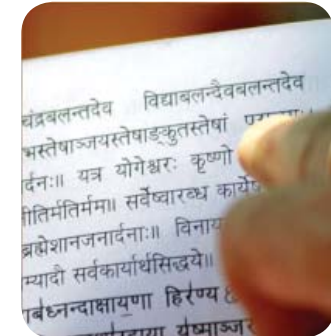 चंद्रबलन्तदेव विद्याबलन्दैवबलन्तदेव
भस्तेषाञ्जयस्तेषाङ्कुतस्तेषां
र्दनः॥ यत्र योगेश्वरः कृष्णो
ीतिर्मतिर्मम॥ सर्वेष्वारब्ध कार्येष
ब्रह्मेशानजनार्दनाः॥ विनाय
म्यादौ सर्वकार्यार्थसिद्धये॥
ाबध्नन्दाक्षायणा हिरण्य